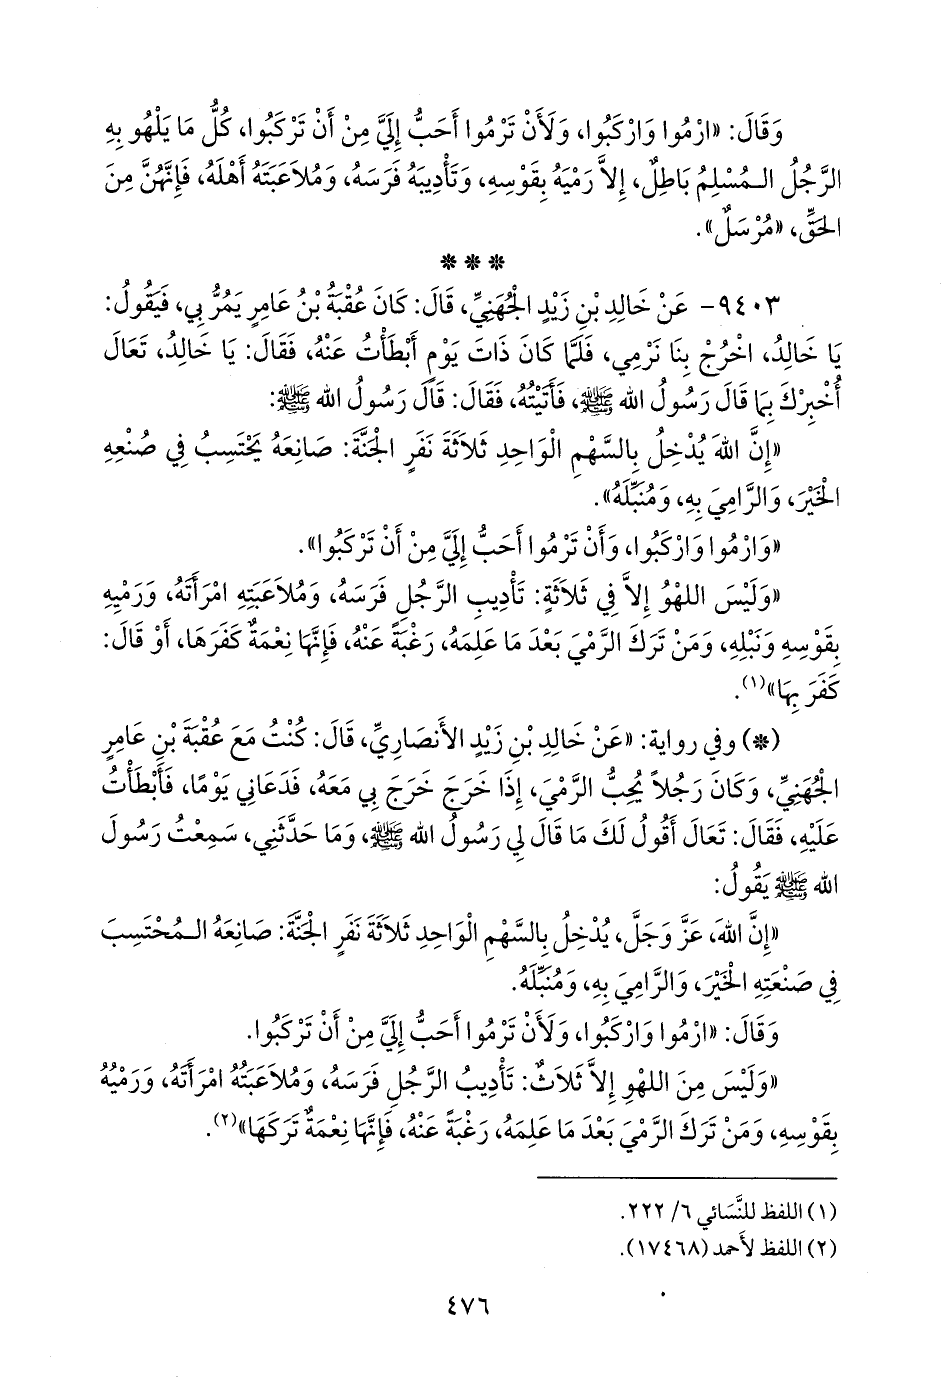 وَقَالَ: «ارْمُوا وَارْكَبُوا، وَلَأَنْ تَرْمُوا أَحَبُّ إِلَيَّ مِنْ أَنْ تَرْكَبُوا، كُلُّ مَا يَلْهُو بِهِ
الرَّجُلُ الْـمُسْلِمُ بَاطِلٌ، إِلاَّ رَمْيَهُ بِقَوْسِهِ، وَتَأْدِيبَهُ فَرَسَهُ، وَمُلاَعَبَتَهُ أَهْلَهُ، فَإِنَّهُنَّ مِنَ
الْحَقِّ، «مُرْسَلٌ».
* * *
٩٤٠٣- عَنْ خَالِدِ بْنِ زَيْدٍ الْجُهَنِيِّ، قَالَ: كَانَ عُقْبَةُ بْنُ عَامِرٍ يَمُرُّ بِي، فَيَقُولُ:
يَا خَالِدُ، اخْرُجْ بِنَا نَرْمِي، فَلَمَّا كَانَ ذَاتَ يَوْمٍ أَبْطَأْتُ عَنْهُ، فَقَالَ: يَا خَالِدُ، تَعَالَ
أُخْبِرْكَ بِمَا قَالَ رَسُولُ الله ﷺ، فَأَتَيْتُهُ، فَقَالَ: قَالَ رَسُولُ الله ﷺ:
«إِنَّ اللهَ يُدْخِلُ بِالسَّهْمِ الْوَاحِدِ ثَلاَثَةَ نَفَرٍ الْجَنَّةَ: صَانِعَهُ يَحْتَسِبُ فِي صُنْعِهِ
الْخَيْرَ، وَالرَّامِيَ بِهِ، وَمُنَبِّلَهُ».
«وَارْمُوا وَارْكَبُوا، وَأَنْ تَرْمُوا أَحَبُّ إِلَيَّ مِنْ أَنْ تَرْكَبُوا».
«وَلَيْسَ اللهْوُ إِلاَّ فِي ثَلاَثَةٍ: تَأْدِيبِ الرَّجُلِ فَرَسَهُ، وَمُلاَعَبَتِهِ امْرَأَتَهُ، وَرَمْيِهِ
بِقَوْسِهِ وَنَبْلِهِ، وَمَنْ تَرَكَ الرَّمْيَ بَعْدَ مَا عَلِمَهُ، رَغْبَةً عَنْهُ، فَإِنَّهَا نِعْمَةٌ كَفَرَهَا، أَوْ قَالَ:
كَفَرَ بِهَا»(١).
(*) وفي رواية: «عَنْ خَالِدِ بْنِ زَيْدٍ الأَنصَارِيِّ، قَالَ: كُنْتُ مَعَ عُقْبَةَ بْنِ عَامِرٍ
الْجُهَنِيِّ، وَكَانَ رَجُلاً يُحِبُّ الرَّمْيَ، إِذَا خَرَجَ خَرَجَ بِي مَعَهُ، فَدَعَانِي يَوْمًا، فَأَبْطَأْتُ
عَلَيْهِ، فَقَالَ: تَعَالَ أَقُولُ لَكَ مَا قَالَ لِي رَسُولُ الله ﷺ، وَمَا حَدَّثَنِي، سَمِعْتُ رَسُولَ
الله ﷺ يَقُولُ:
«إِنَّ اللهَ، عَزَّ وَجَلَّ، يُدْخِلُ بِالسَّهْمِ الْوَاحِدِ ثَلاَثَةَ نَفَرٍ الْجَنَّةَ: صَانِعَهُ الْـمُحْتَسِبَ
فِي صَنْعَتِهِ الْخَيْرَ، وَالرَّامِيَ بِهِ، وَمُنَبِّلَهُ.
وَقَالَ: «ارْمُوا وَارْكَبُوا، وَلَأَنْ تَرْمُوا أَحَبُّ إِلَيَّ مِنْ أَنْ تَرْكَبُوا.
«وَلَيْسَ مِنَ اللهْوِ إِلاَّ ثَلاَثٌ: تَأْدِيبُ الرَّجُلِ فَرَسَهُ، وَمُلاَعَبَتُهُ امْرَأَتَهُ، وَرَمْيُهُ
بِقَوْسِهِ، وَمَنْ تَرَكَ الرَّمْيَ بَعْدَ مَا عَلِمَهُ، رَغْبَةً عَنْهُ، فَإِنَّهَا نِعْمَةٌ تَرَكَهَا»(٢).
(١) اللفظ للنَّسَائي ٦/ ٢٢٢.
(٢) اللفظ لأَحمد (١٧٤٦٨).
٤٧٦